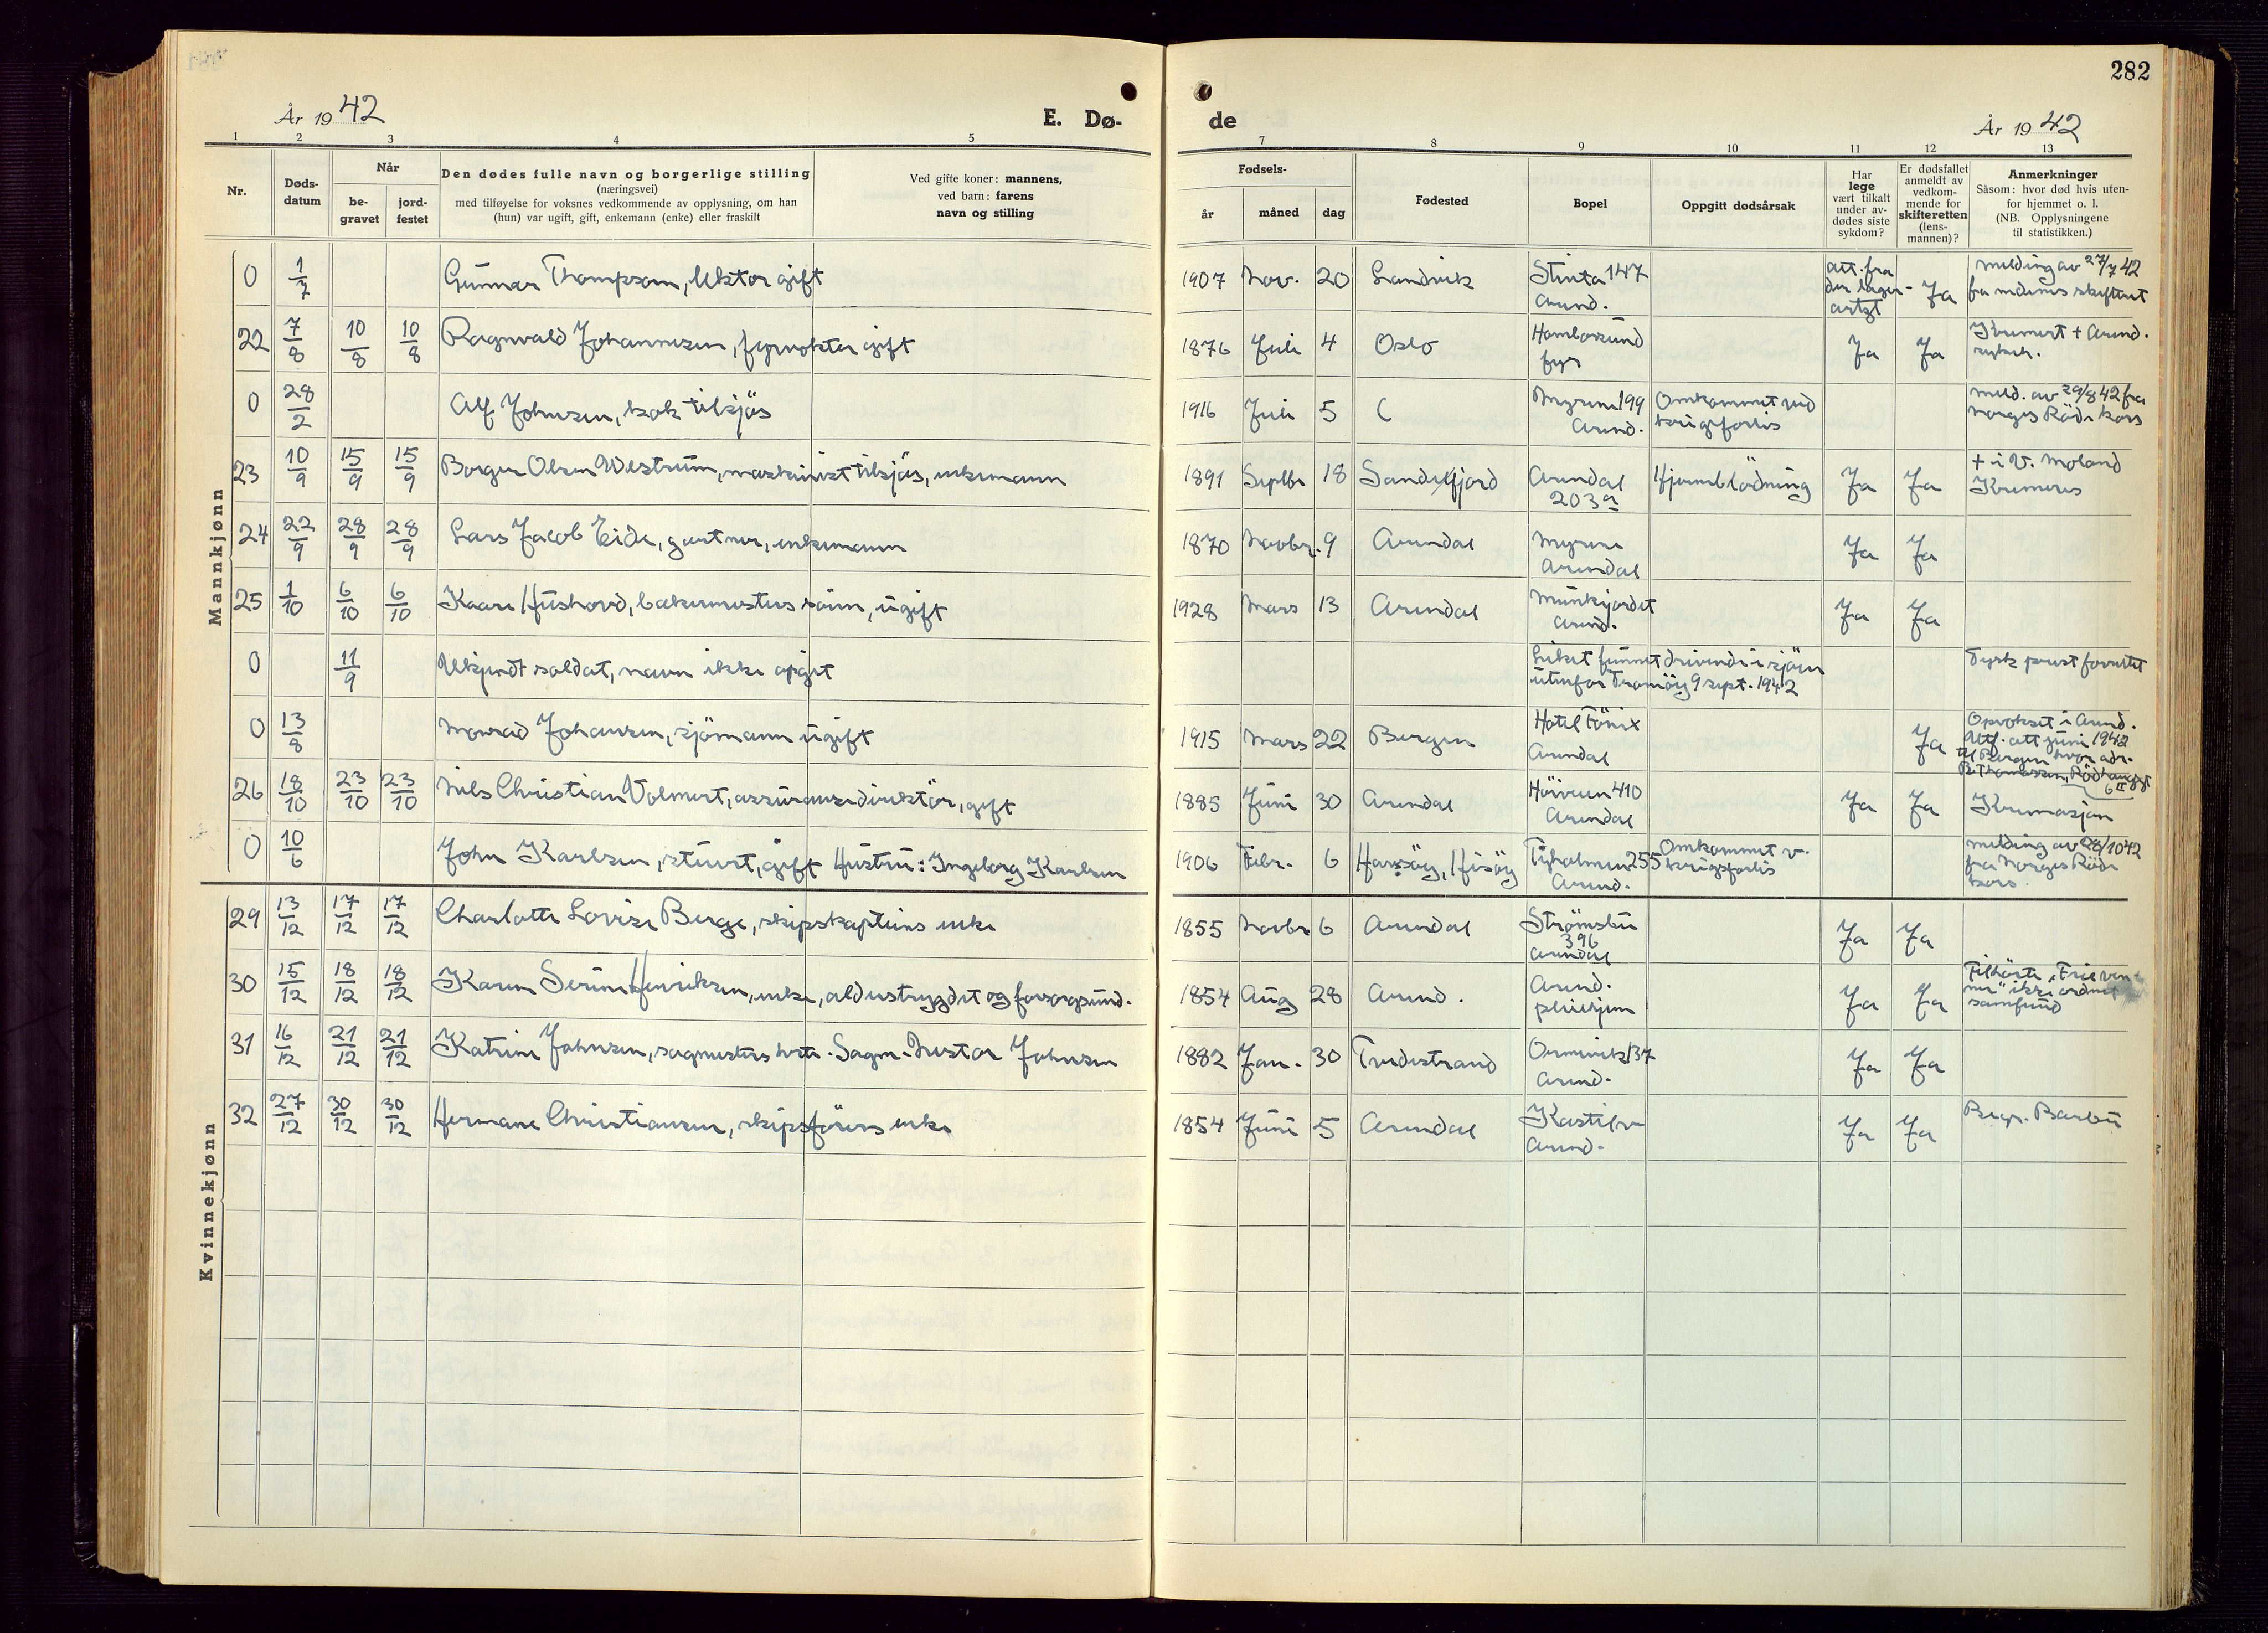 282
År 1942
E. Dø-
de
År 1942
1 2 3 4 5 7 8 9 10 11 12 13
Nr.
Døds-
datum
Når
be-
gravet
jord-
festet
Den dødes fulle navn og borgerlige stilling
(næringsvei)
med tilføyelse for voksnes vedkommende av opplysning, om han
(hun) var ugift, gift, enkemann (enke) eller fraskilt
Ved gifte koner: mannens,
ved barn: farens
navn og stilling
Fødsels-
år
måned
dag
Fødested
Bopel
Oppgitt dødsårsak
Har
lege
vært tilkalt
under av-
dødes siste
sykdom?
Er dødsfallet
anmeldt av
vedkom-
mende for
skifteretten
(lens-
mannen)?
Anmerkninger
Såsom: hvor død hvis uten-
for hjemmet o. l.
(NB. Opplysningene
til statistikken.)
Mannkjønn
0 1/7 Gunnar Thompson, lektor gift 1907 Nov. 20 Landvik Stinta 147 Arend. att. fra der lager- artzt Ja melding av 27/7 42 fra nedenes skifteret
22 7/8 10/8 10/8 Ragnvald Johannesen, fyrvokter gift 1876 Juli 4 Oslo Homborsund fyr Ja Ja Kremert + Arend. sykeh.
0 28/2 Alf Johnsen, kok tilsjøs 1916 Juli 5 Myrene 199 Arend. Omkommet ved krigsforlis meld. av 29/8 42 fra Norges Röde kors
23 10/9 15/9 15/9 Borger Olsen Velstrum, maskinist tilsjøs, enkemann 1891 Septbr 18 Sandefjord Arendal 203a Hjerneblödning Ja Ja + i V. Moland Kremeres
24 22/9 28/9 28/9 Lars Jacob Eide, gartner, enkemann 1870 Novbr. 9 Arendal Myrene Arendal Ja Ja
25 1/10 6/10 6/10 Kaare Hushovd, bakermesters sønn, ugift 1928 Mars 13 Arendal Munkejordet Arend. Ja Ja
0 11/9 Ukjendt soldat, navn ikke opgit Liket funnet drivende i sjøen utenfor Tromöy 9 sept. 1942 Tysk prest forrettet
0 13/8 Monrad Johansen, sjömann ugift 1915 Mars 22 Bergen Hotel Fönix Arendal Ja Opvokset i Arend. Utfl. att juni 1942 til Bergen hvor adr. B. Thomassen, Rödhauggt 6 II
26 18/10 23/10 23/10 Nils Christian Volmert, assuransedirektör, gift 1885 Juni 30 Arendal Höiveien 410 Arendal Ja Ja Kremasjon
0 10/6 John Karlsen, stuert, gift Hustru: Ingeborg Karlsen 1906 Febr. 6 Havsöy, Hisöy Tyholmen 255 Arend. Omkommet v. krigsforlis melding av 28/10 42 fra Norges Röde kors
Kvinnekjønn
29 13/12 17/12 17/12 Charlotte Lovise Berge, skipskapteins enke 1855 Novbr 6 Arendal Strömsbu 396 Arendal Ja Ja
30 15/12 18/12 18/12 Karen Serine Henriksen, enke, alderstrygdet og forsorgsund. 1854 Aug 28 Arend. Arend. pleiehjem Ja Ja Tilhörte "Frie ven- ner" ikke ordnet samfund
31 16/12 21/12 21/12 Katrine Johnsen, sagmesters hstr. Sagm. Nestor Johnsen 1882 Jan. 30 Tvedestrand Ormevik 137 Arend. Ja Ja
32 27/12 30/12 30/12 Hermane Christiansen, skipsførers enke 1854 Juni 5 Arendal Kastelv Arend. Ja Ja Begr. Barbu